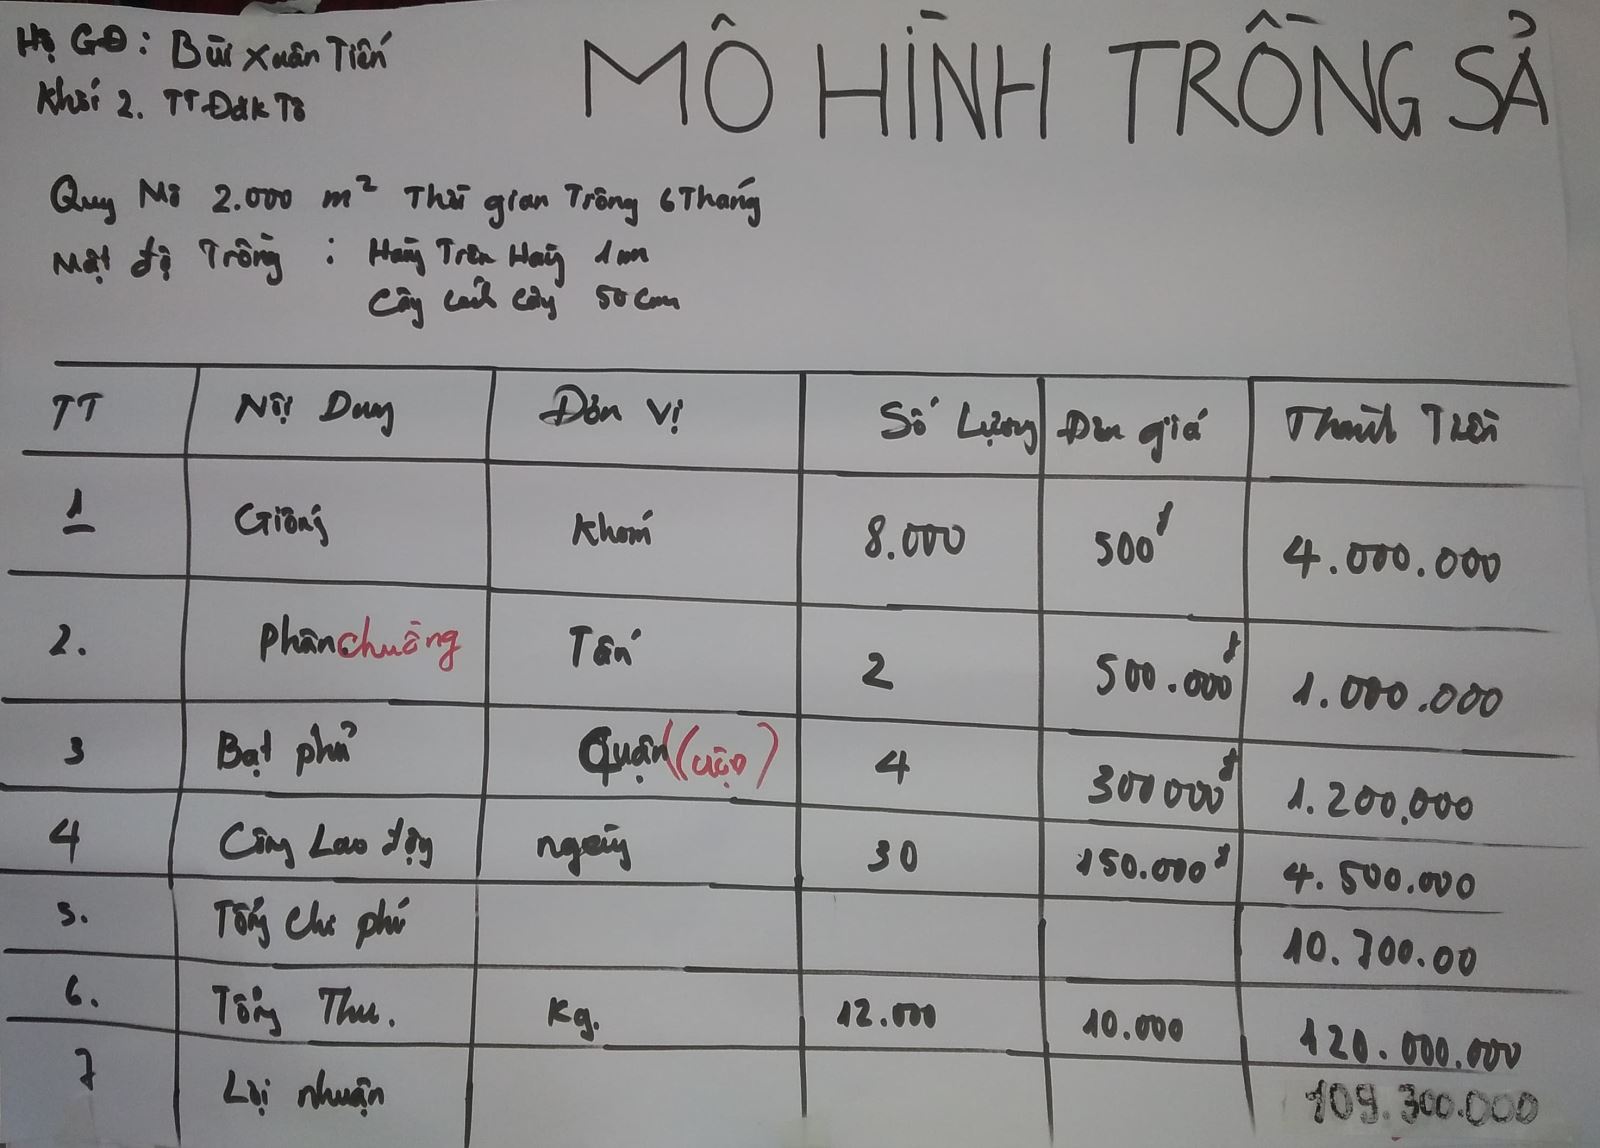 Hộ GĐ: Bùi Xuân Tiến
Khối 2. TT Đăk Tô
MÔ HÌNH TRỒNG SẢ
Quy Mô 2.000 m² Thời gian Trồng 6 Tháng
Mật độ Trồng : Hàng Trên Hàng 1m
Cây cách cây 50cm
TT Nội Dung Đơn Vị Số Lượng Đơn giá Thành Tiền
1 Giống Khóm 8.000 500đ 4.000.000
2. Phân chuồng Tấn 2 500.000đ 1.000.000
3 Bạt phủ Quận (cuộn) 4 300000đ 1.200.000
4 Công Lao động ngày 30 150.000đ 4.500.000
5. Tổng chi phí 10.700.00
6. Tổng Thu. Kg. 12.000 10.000 120.000.000
7 Lợi nhuận 109.300.000